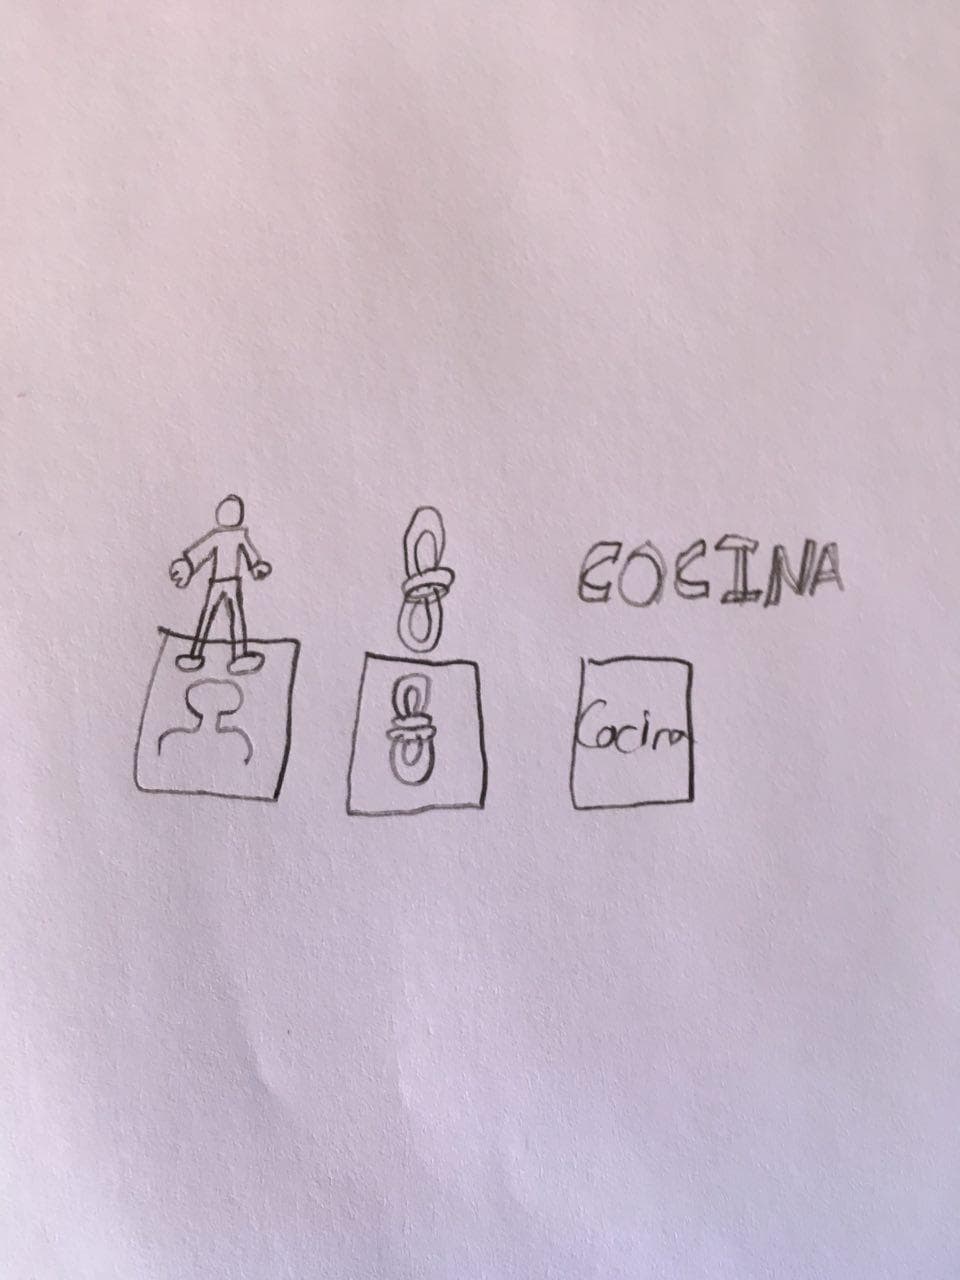 COCINA
Cocina